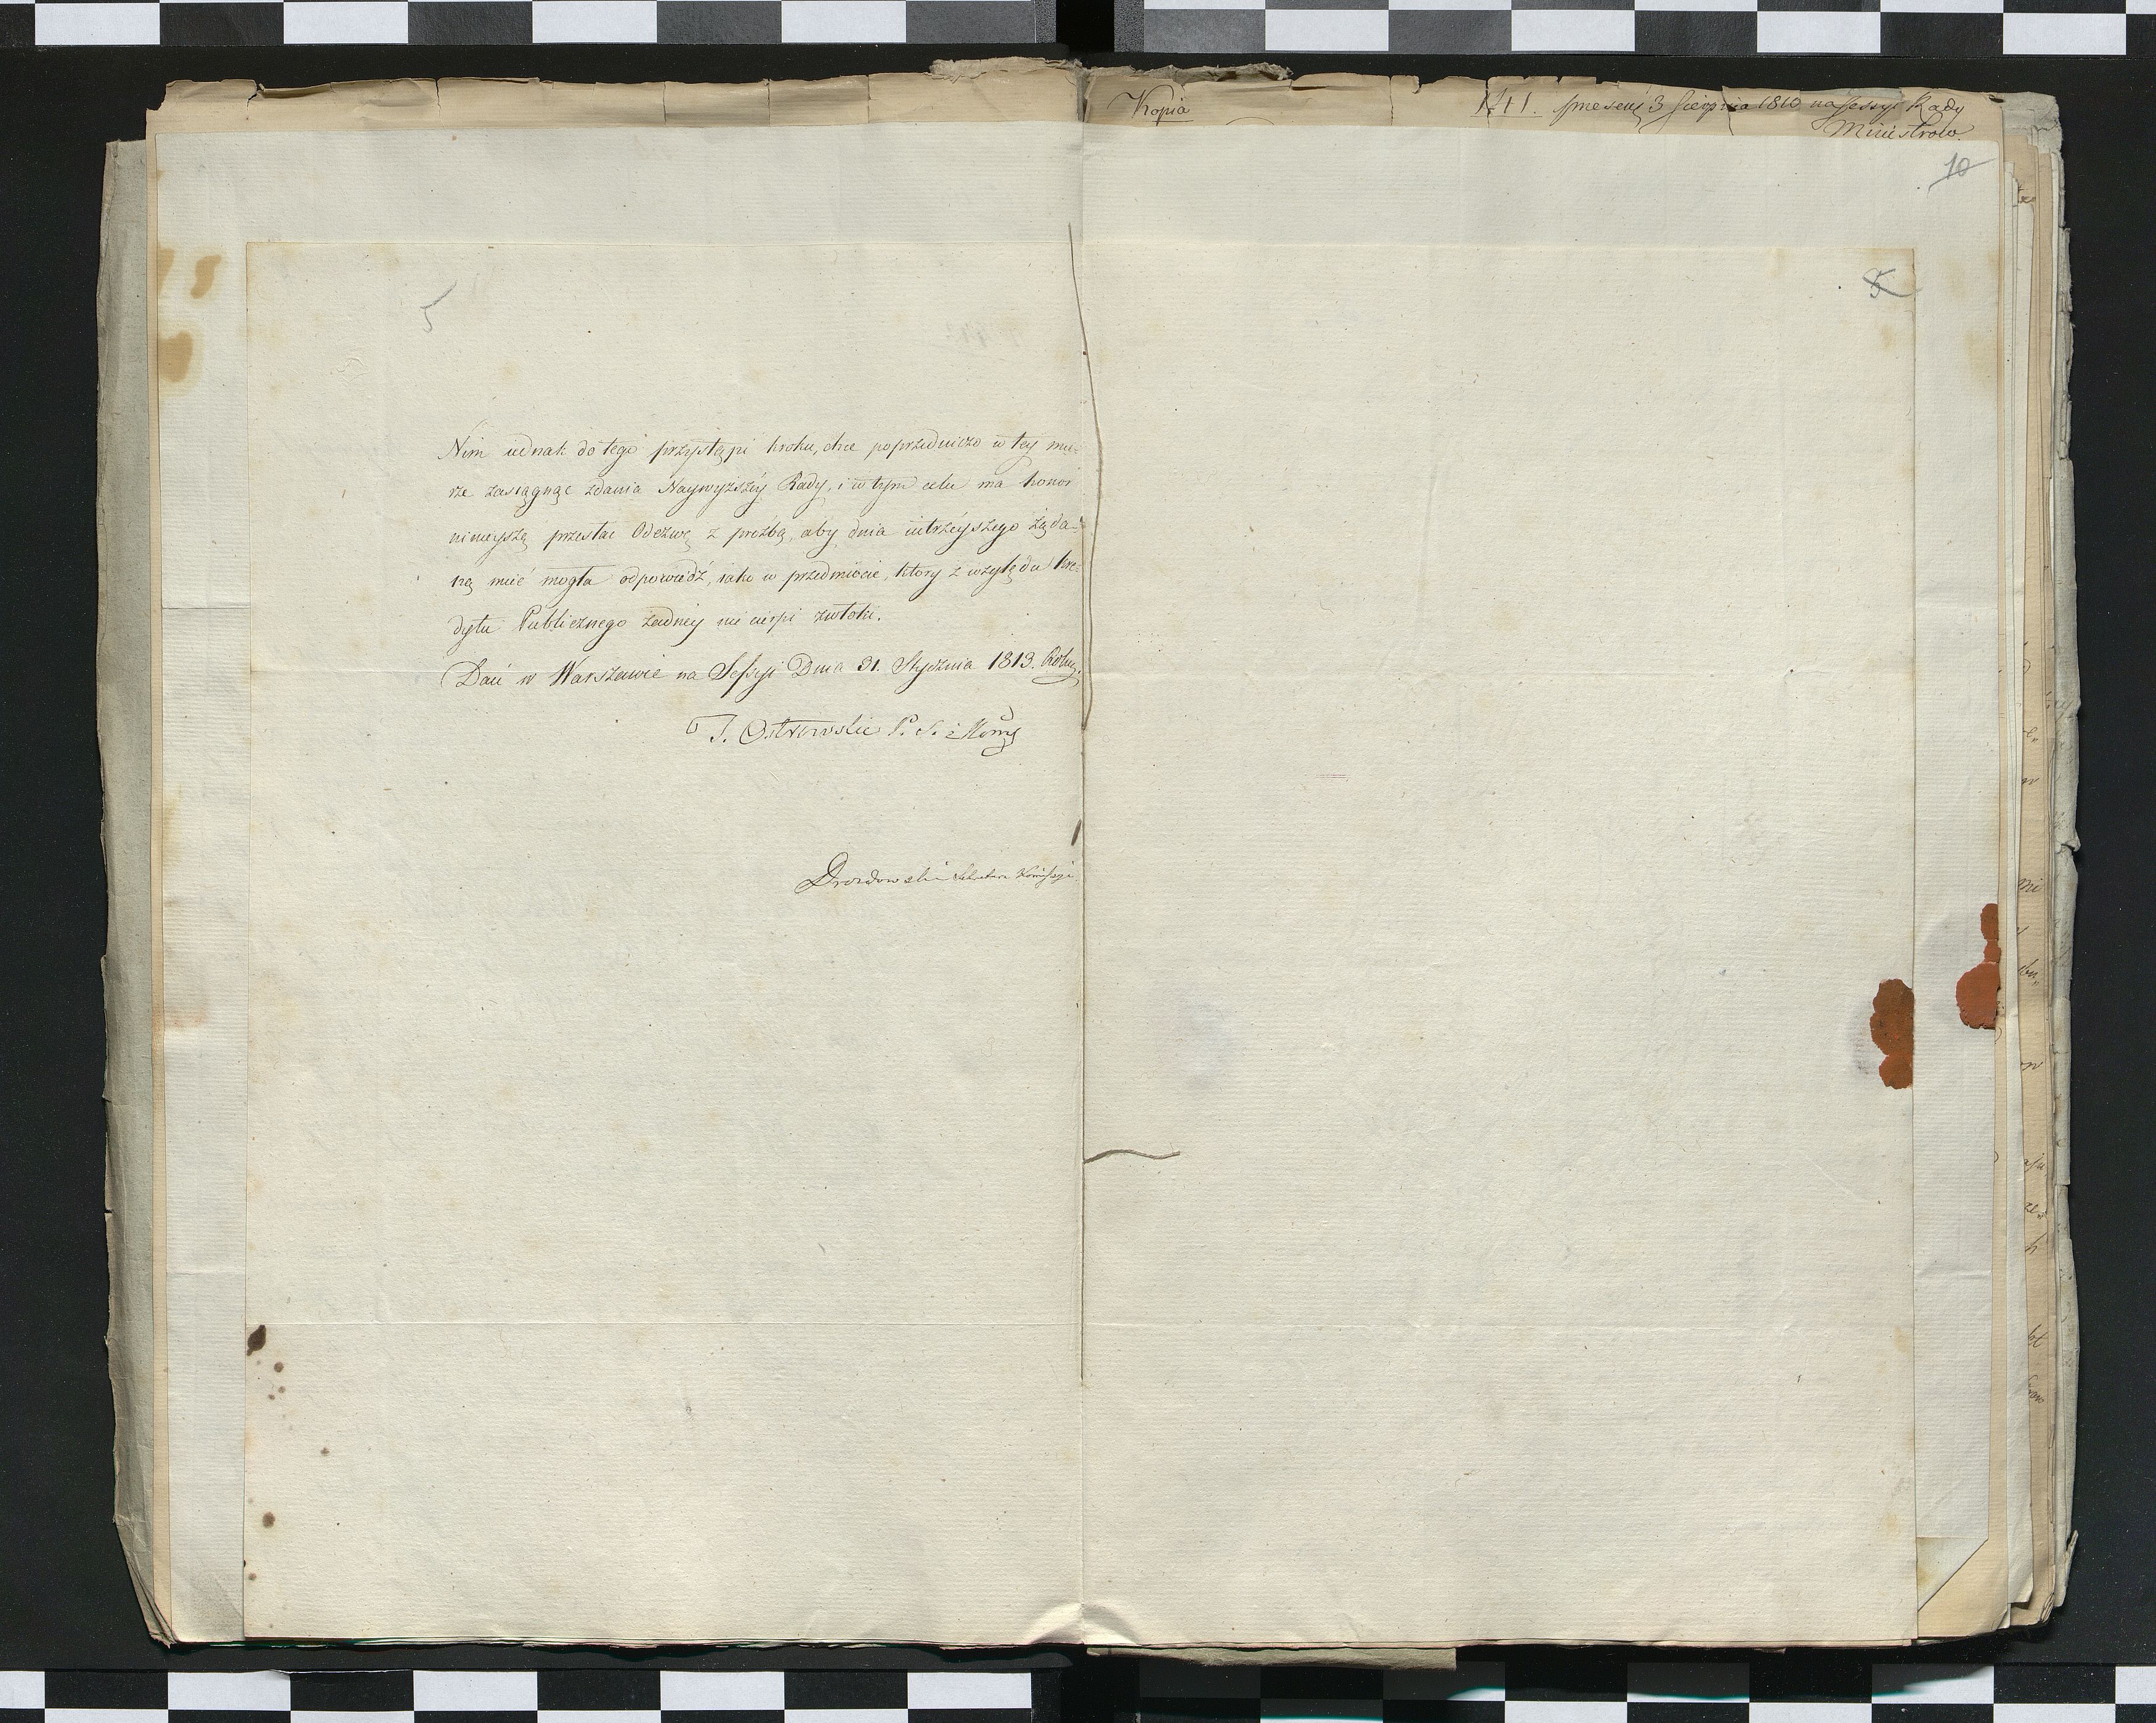 Kopia
1411. prnesený 3 Sierpnia 1810 na Sessyi Rady
Ministrów
10
5
5
Nim iednak do tego przystąpi kroku, chce poprzedniczo w tey mie=
rze zasiągnąć zdania Naywyższéy Rady, i w tym celu ma honor
ninieyszą przesłać Odezwę z proźbą, aby dnia iutrzéyszego żąda=
ną mieć mogła odpowiedź, iako w przedmiocie, ktory z względu kre=
dytu Publicznego żadney nie cierpi zwłoki.
Dań w Warszawie na Sessyi Dnia 31. Stycznia 1813. Roku.
T. Ostrowski P. S. i Komỹ
Drozdowski Sekretarz Komissyi